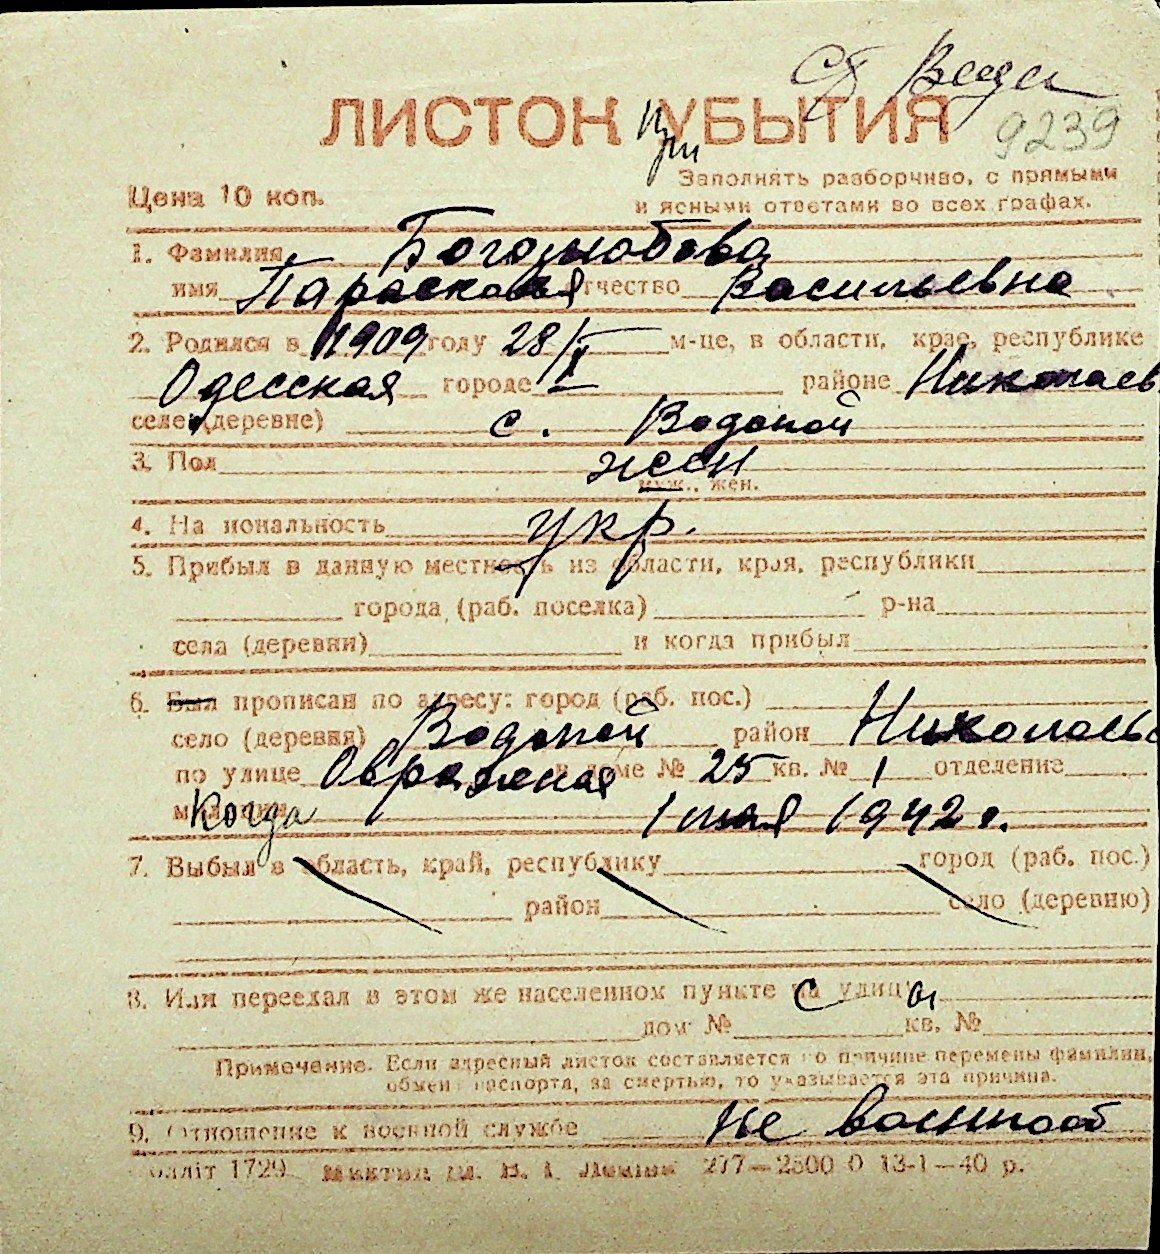 ЛИСТОК При УБЫТИЯ
9239
Цена 10 коп.
Заполнять разборчиво, с прямыми
и ясными ответами во всех графах.
1. Фамилия Боголюбова
имя Парасковья отчество Васильевна
2. Родился в 1909 году 28/ м-це, в области, крае, республике
Одесская городе районе Николаев
селе (деревне) с. Водопой
3. Пол жен
муж., жен.
4. Национальность укр.
5. Прибыл в данную местность из области, края, республики
города (раб. поселка) р-на
села (деревни) и когда прибыл
6. Был прописан по адресу: город (раб. пос.)
село (деревня) Водопой район Николаевс
по улице Овражная в доме № 25 кв. № 1 отделение
Когда 1 мая 1942 г.
7. Выбыл в область, край, республику город (раб. пос.)
район село (деревню)
8. Или переехал в этом же населенном пункте на улицу
дом № кв. №
Примечание. Если адресный листок составляется по причине перемены фамилии,
обмена паспорта, за смертью, то указывается эта причина.
9. Отношение к военной службе не военнооб
1729 277—2500 0 13-1—40 р.